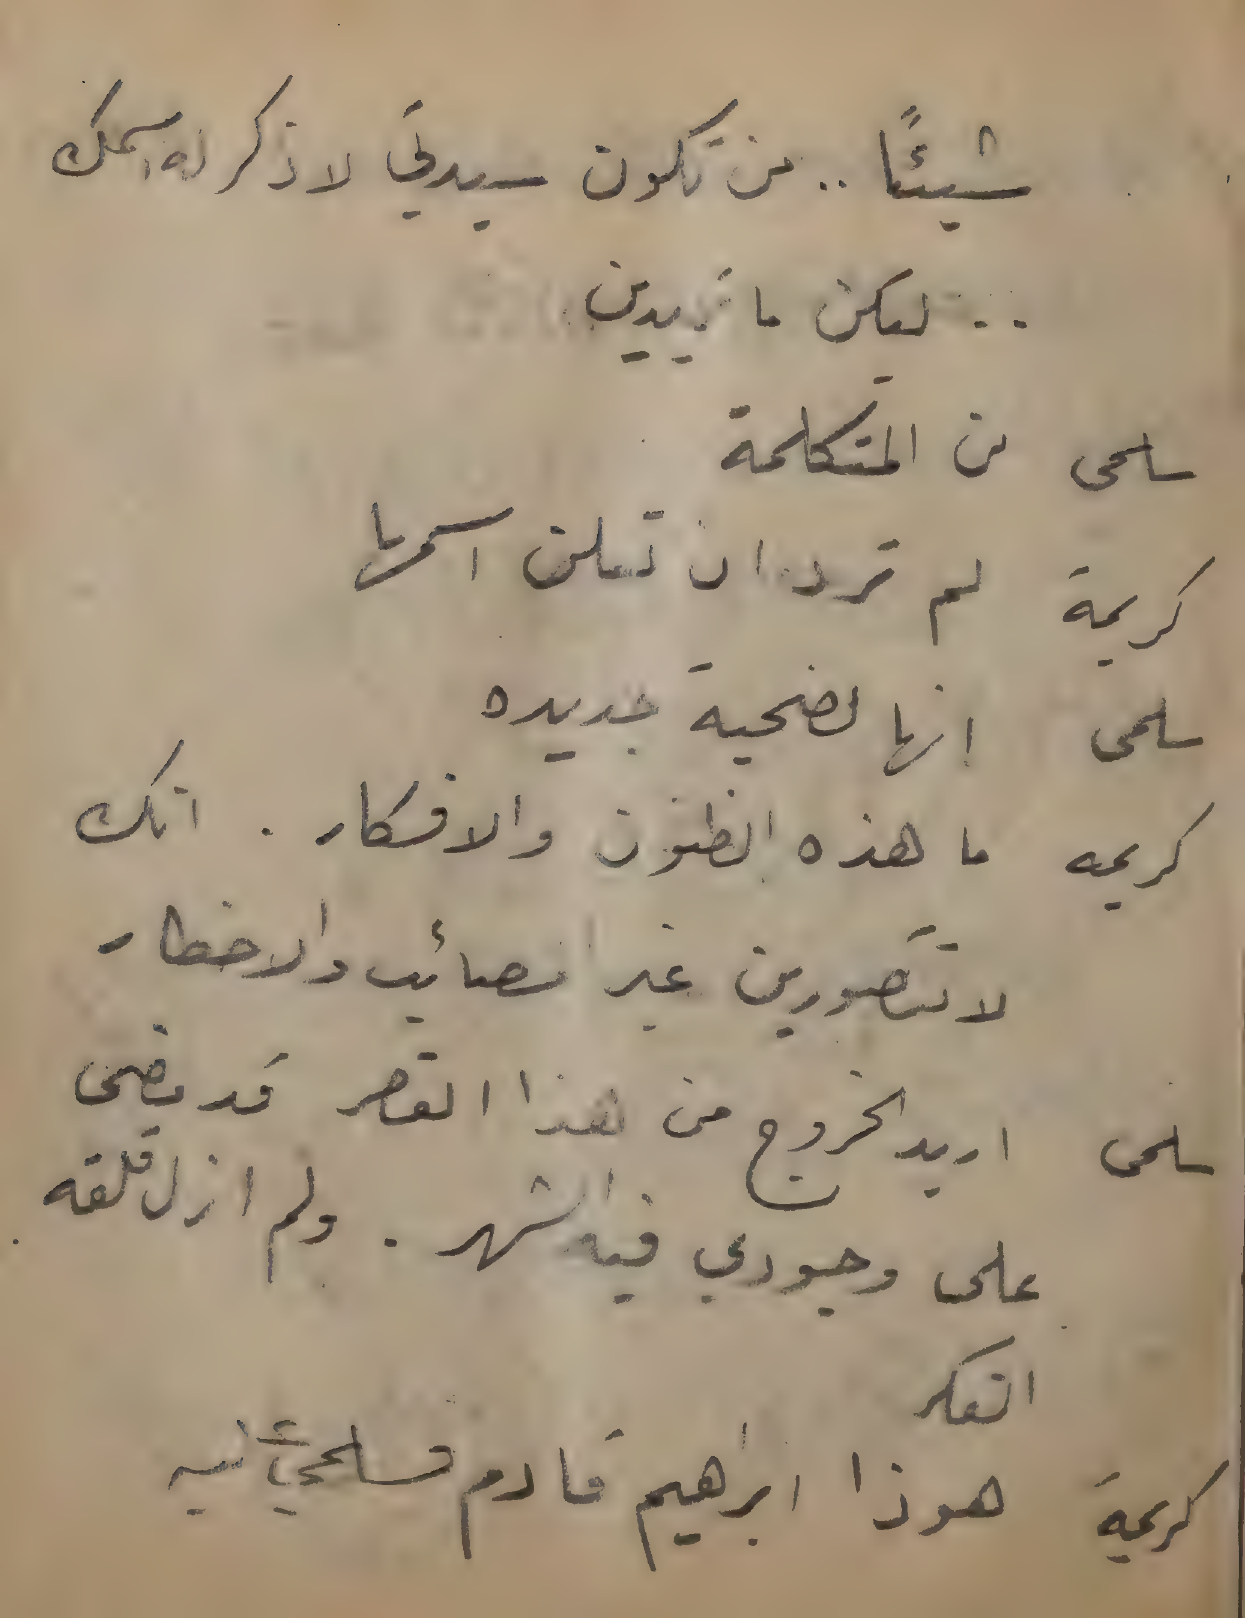 شيئًا .. من تكون سيدتي لاذكر له اسمك
.. ليكن ما تريدين
سلمى من المتكلمة
كريمة لم ترد ان تعلن اسمها
سلمى انها لضحية جديده
كريمه ما هذه الظنون والافكار . انك
لا تتصورين غير المصائب والاخطار
سلمى اريد الخروج من هذا القصر قد مضى
على وجودي فيه الشهر . ولم ازل قلقه
الفكر
كريمة هوذا ابراهيم قادم